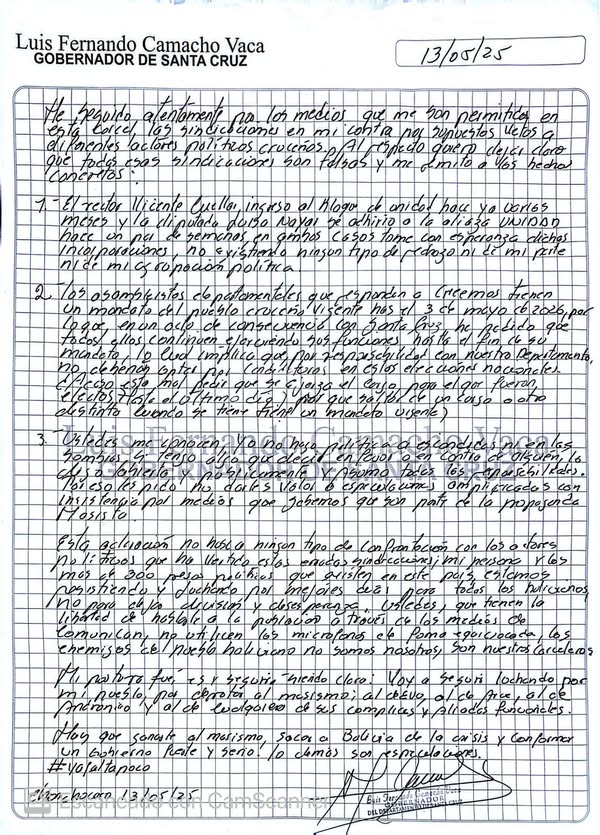 Luis Fernando Camacho Vaca
GOBERNADOR DE SANTA CRUZ
13/05/25
He seguido atentamente por los medios que me son permitidos en
esta carcel, las sindicaciones en mi contra por supuestos vetos a
diferentes actores políticos cruceños. Al respecto quiero dejar claro
que todas esas sindicaciones son falsas y me remito a los hechos
concretos:
1.- El rector Vicente Cuellar, ingreso al Bloque de unidad hace ya varios
meses y la diputada Luisa Nayar se adhirio a la alianza UNIDAD
hace un par de semanas, en ambos casos tome con esperanza dichas
incorporaciones, no existiendo ningun tipo de rechazo ni de mi parte
ni de mi agrupación política.
2.- Los asambleistas departamentales que responden a Creemos tienen
un mandato del pueblo cruceño vigente hasta el 3 de mayo de 2026, por
lo que, en un acto de consecuencia con Santa Cruz, he pedido que
todos ellos continuen ejerciendo sus funciones hasta el fin de su
mandato, lo cual implica que, por responsabilidad con nuestro Departamento,
no deberian optar por candidaturas en estas elecciones nacionales.
¿Acaso esta mal pedir que se ejerza el cargo para el que fueron
electos hasta el último día y no que saltar de un cargo a otro
distinto cuando se tiene un mandato vigente)
3.- Ustedes me conocen, yo no hago política a escondidas ni en las
sombras, si tengo algo que decir en favor o en contra de alguien, lo
digo abierta y publicamente y asumo todas las responsabilidades.
Por eso les pido no darles valor a especulaciones amplificadas con
insistencia por medios que sabemos que son parte de la propaganda
Masista.
Luis Fernando Camacho Vaca
GOBERNADOR DE SANTA CRUZ
Esta aclaración no busca ningun tipo de confrontación con los actores
políticos que ha vertido estas erradas sindicaciones; mi persona y los
mas de 300 presos políticos que existen en este pais, estamos
resistiendo y luchando por mejores dias para todos los bolivianos,
no para dejar division y desesperanza. Ustedes, que tienen la
libertad de hablarle a la población a través de los medios de
comunicación, no utilicen los microfonos de forma equivocada, los
enemigos del pueblo boliviano no somos nosotros, son nuestros carceleros
Mi postura fue, es y seguira siendo clara: Voy a seguir luchando por
mi pueblo, por derrotar al masismo; al de Evo, al de Arce, al de
Andrónico y al de cualquiera de sus complices y aliados funcionales.
Hay que ganarle al masismo, sacar a Bolivia de la crisis y conformar
un Gobierno fuerte y serio. lo demás son especulaciones.
#yafaltapoco
Chonchocoro 13/05/25
Escaneado con CamScanner
Luis Fernando Camacho Vaca
GOBERNADOR
DEL DEPARTAMENTO DE SANTA CRUZ